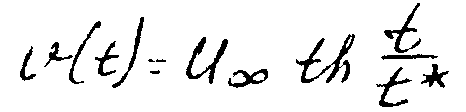 v(t) = U∞ th t/t*